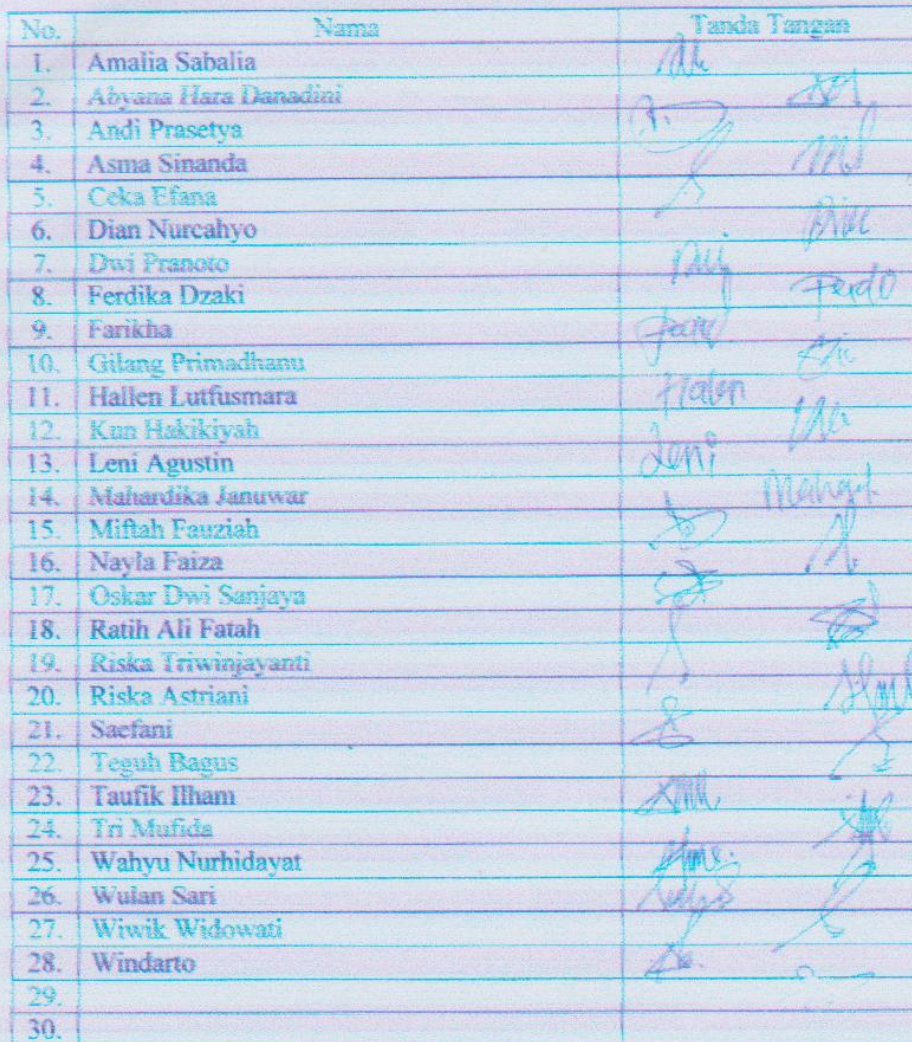 No. Nama Tanda Tangan
1. Amalia Sabalia
2. Abyana Hara Danadini
3. Andi Prasetya
4. Asma Sinanda
5. Ceka Efana
6. Dian Nurcahyo
7. Dwi Pranoto
8. Ferdika Dzaki Ferdo
9. Farikha
10. Gilang Primadhanu
11. Hallen Lutfusmara Halen
12. Kun Hakikiyah
13. Leni Agustin Leni
14. Mahardika Januwar
15. Miftah Fauziah
16. Nayla Faiza
17. Oskar Dwi Sanjaya
18. Ratih Ali Fatah
19. Riska Triwinjayanti
20. Riska Astriani
21. Saefani
22. Teguh Bagus
23. Taufik Ilham
24. Tri Mufida
25. Wahyu Nurhidayat
26. Wulan Sari
27. Wiwik Widowati
28. Windarto
29.
30.